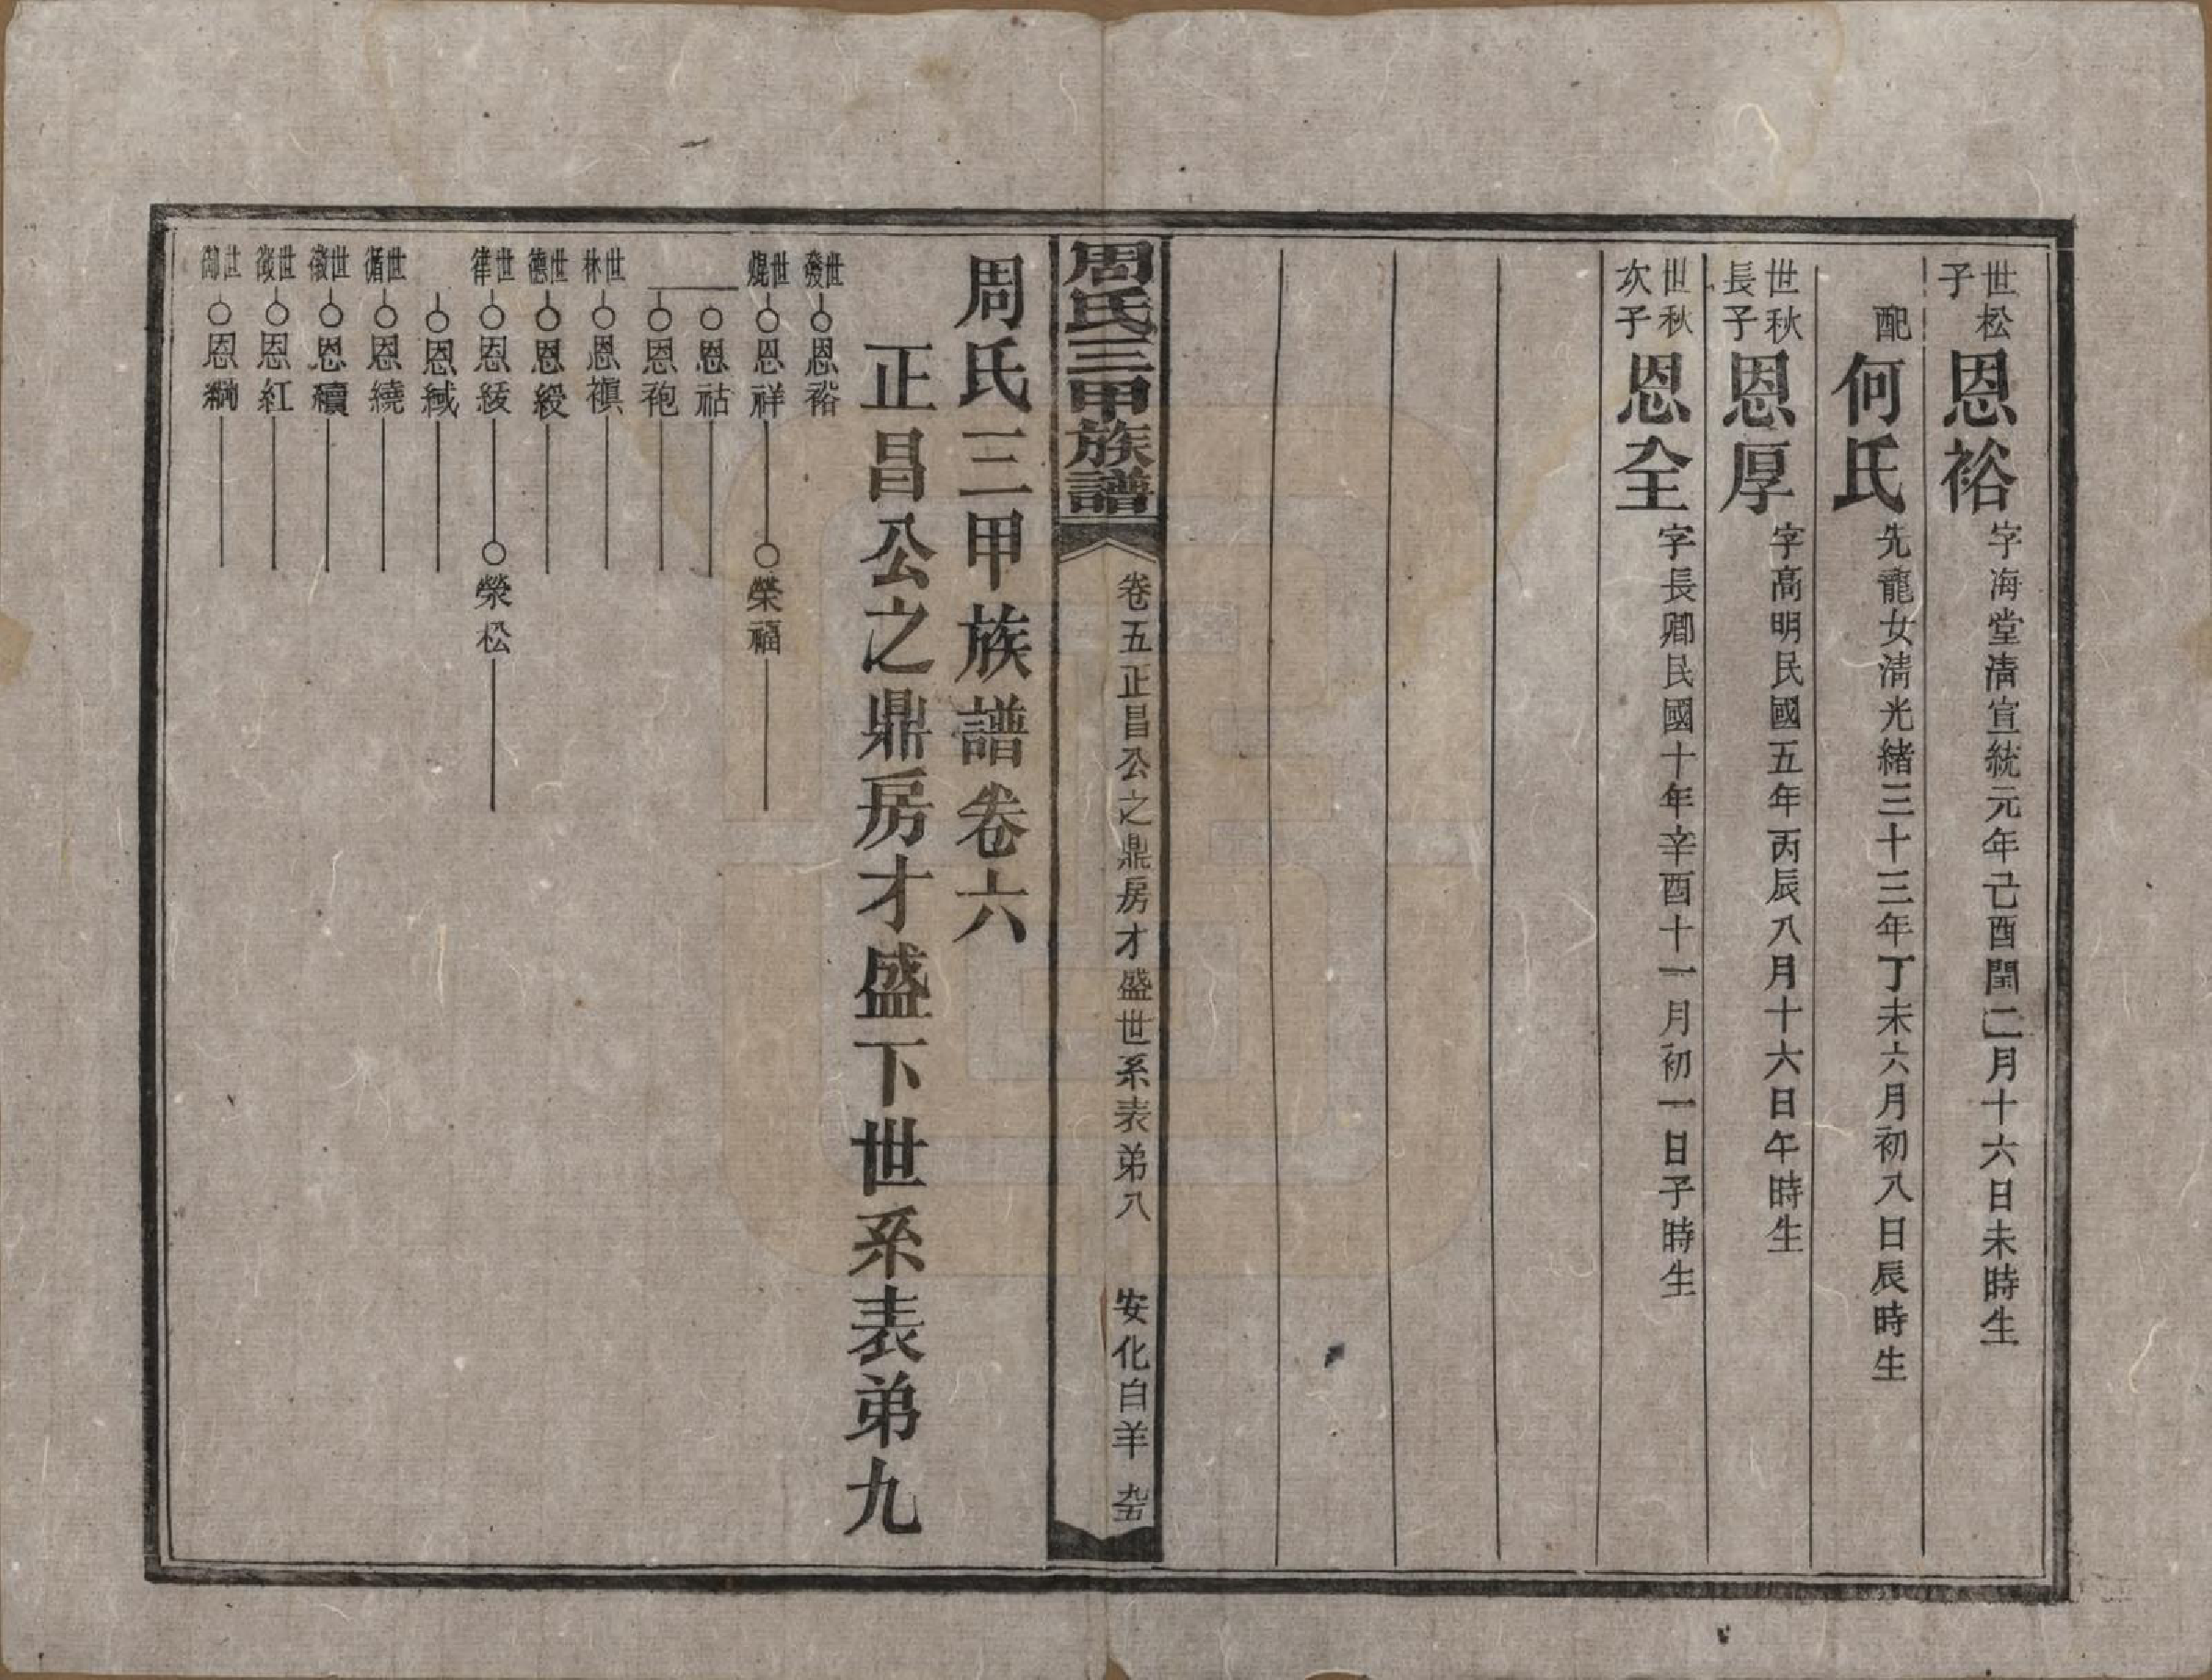 世松子 恩裕 字海堂清宣統元年己酉閏二月十六日未時生
配 何氏 先龍女清光緒三十三年丁未六月初八日辰時生
世秋長子 恩厚 字高明民國五年丙辰八月十六日午時生
世秋次子 恩全 字長卿民國十年辛酉十一月初一日子時生
周氏三甲族譜
卷五正昌公之鼎房才盛世系表弟八
安化白羊
九五
周氏三甲族譜卷六
正昌公之鼎房才盛下世系表弟九
世 恩裕
世焜 恩祥 榮福
恩祜
恩袍
世林 恩禛
世德 恩綬
世律 恩綾 榮松
恩緘
世循 恩繞
世徵 恩續
世 恩紅
世御 恩綱